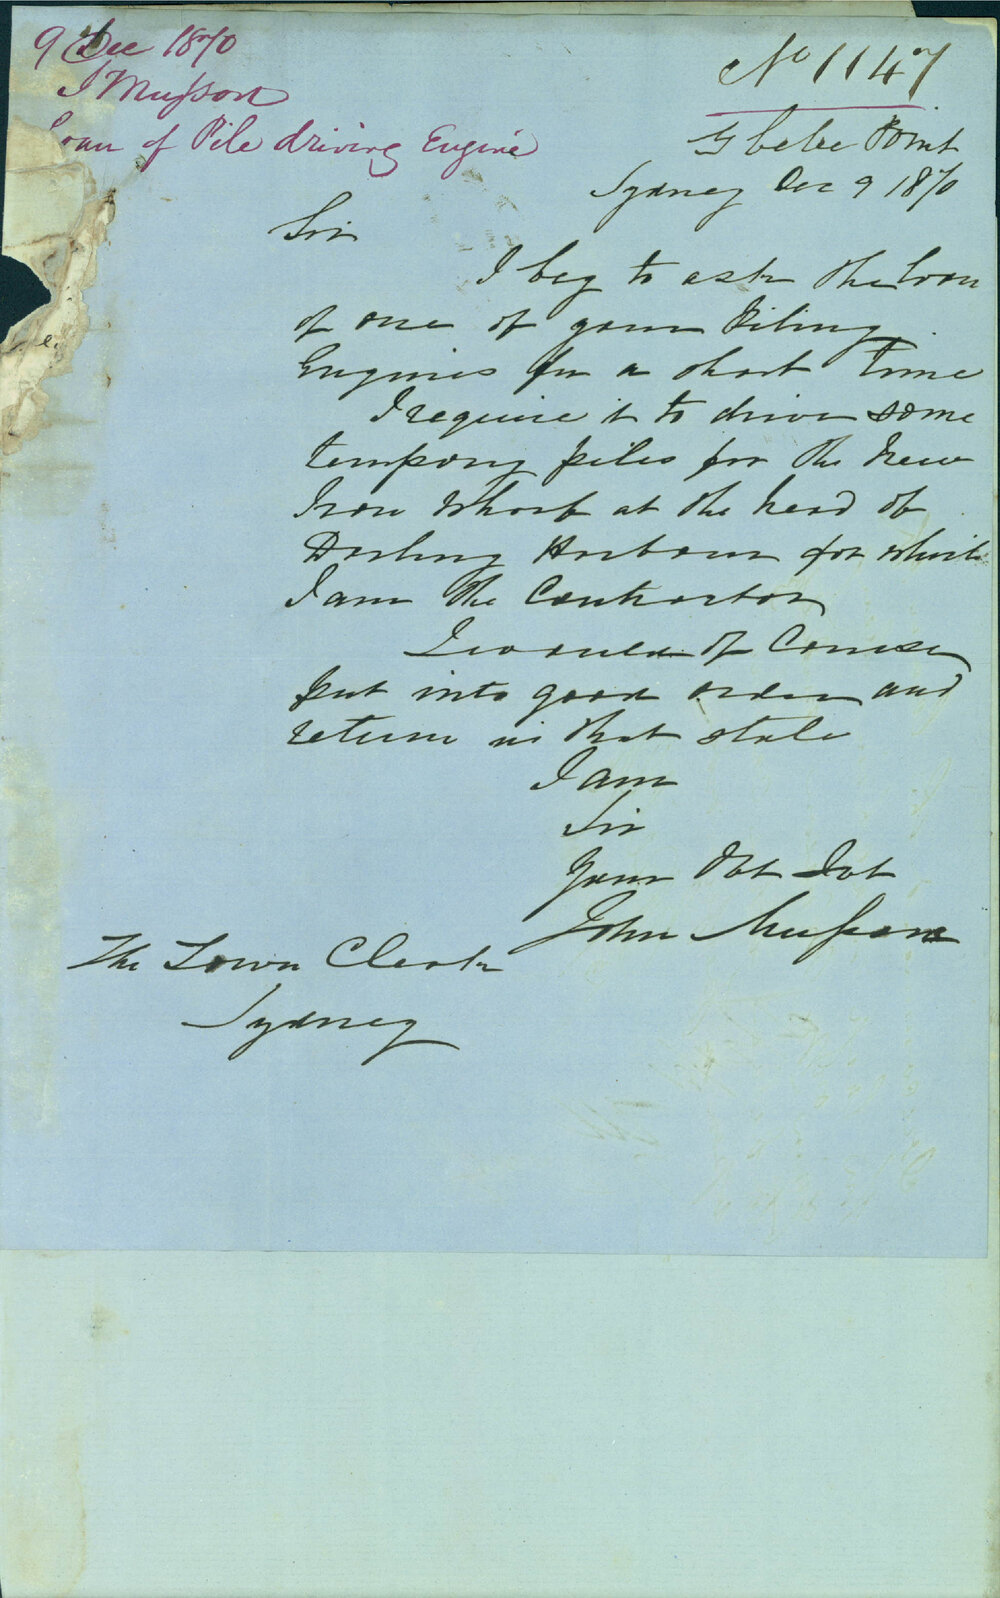 9 Dec 1870
J Musson
Loan of Pile driving Engine
No 1147
Glebe Point
Sydney Dec 9 1870
Sir
I beg to ask the loan
of one of your Piling
Engines for a short time
I require it to drive some
tempory piles for the New
Iron Wharf at the head of
Darling Harbour for which
I am the Contractor
I would of Course
put into good order and
return in that state
I am
Sir
Your Obt Svt
John Musson
The Town Clerk
Sydney